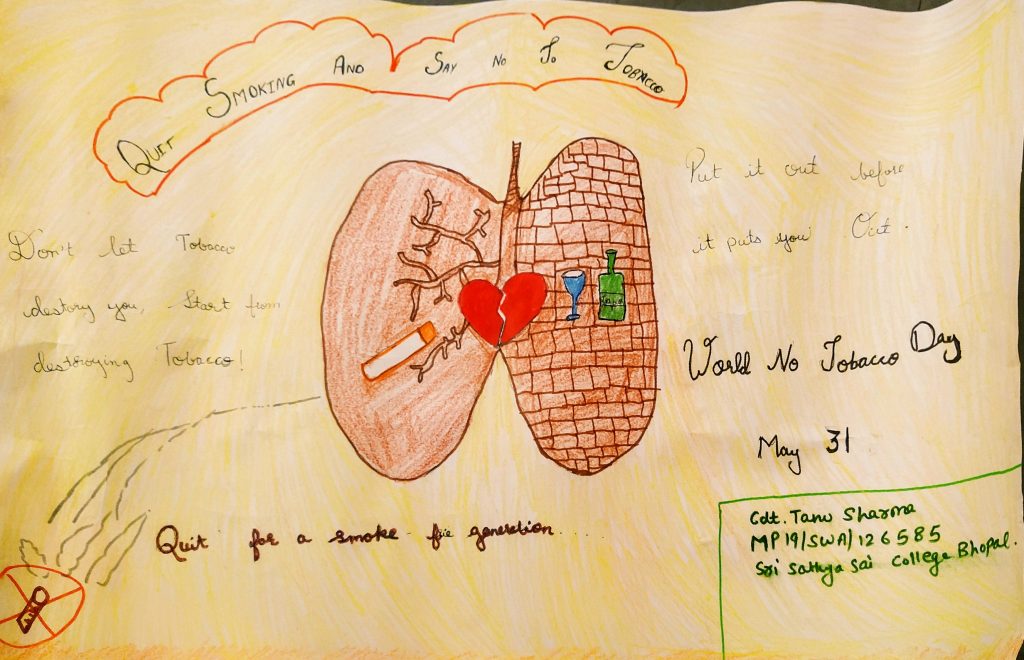 Quit Smoking And Say No To Tobacco
Don't let Tobacco
destory you, Start from
destroying Tobacco!
Put it out before
it puts you Out.
World No Tobacco Day
May 31
Quit for a smoke fie generation....
Cdt. Tanu Sharma
MP19/SWA/126585
Sri Sathya Sai College Bhopal.